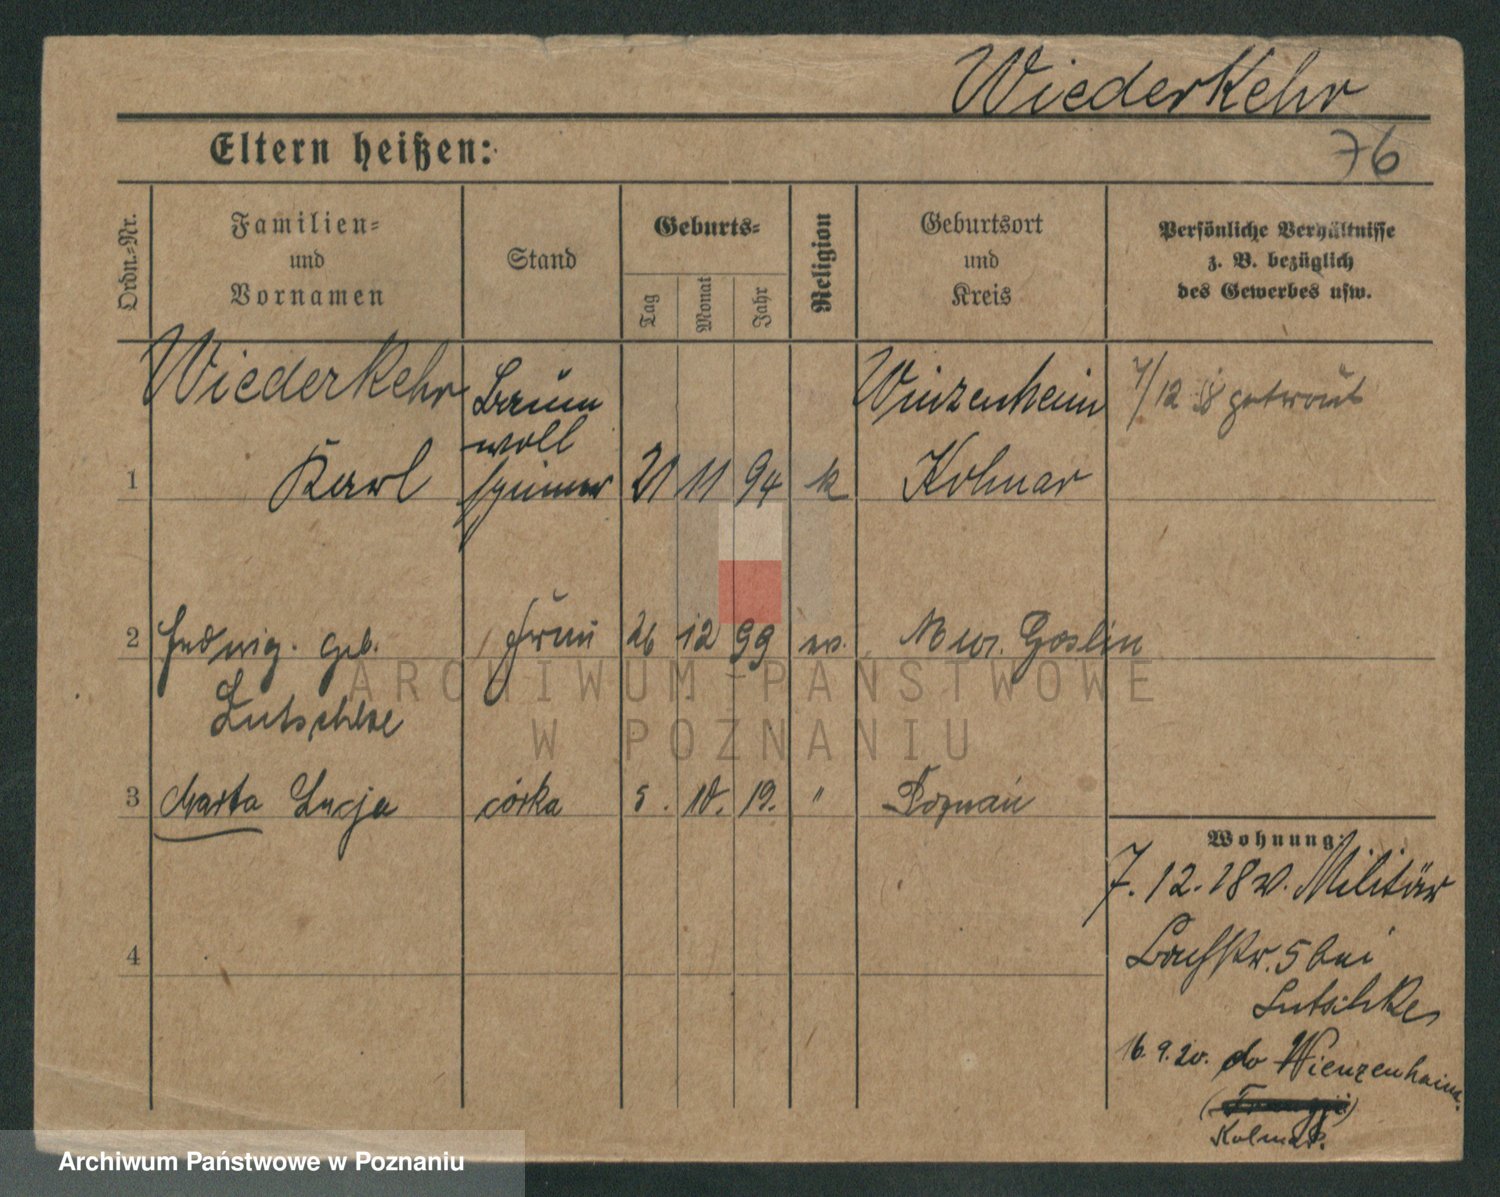 Wiederkehr
76
Eltern heißen:
Ordn.-Nr.
Familien-
und
Vornamen
Stand
Geburts-
Tag
Monat
Jahr
Religion
Geburtsort
und
Kreis
Persönliche Verhältnisse
z. B. bezüglich
des Gewerbes usw.
Wiederkehr
Karl
Baum
woll
spinner
1
21 11 94 k
Winzenheim
Kolmar
7/12 18 getraut
2
Hedwig. geb.
Lutschke
Frau
26 12 99 ev.
Mur. Goslin
3 Marta Lucja córka 5. 10. 19. " Poznań
4
Wohnung:
7. 12. 18 v. Militär
Bachstr. 5 bei
Lutschke
16. 9. 20. do Wienzenheim.
(Francji)
Kolmar.
ARCHIWUM PAŃSTWOWE
W POZNANIU
Archiwum Państwowe w Poznaniu